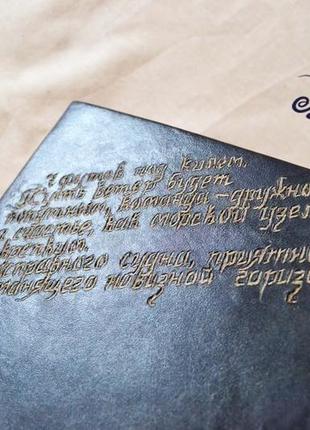 7 футов под килем.
Пусть ветер будет
попутным, команда - дружно
а счастье, как морской узел
крепким.
справного судна, приятно
манящего новизной гориз